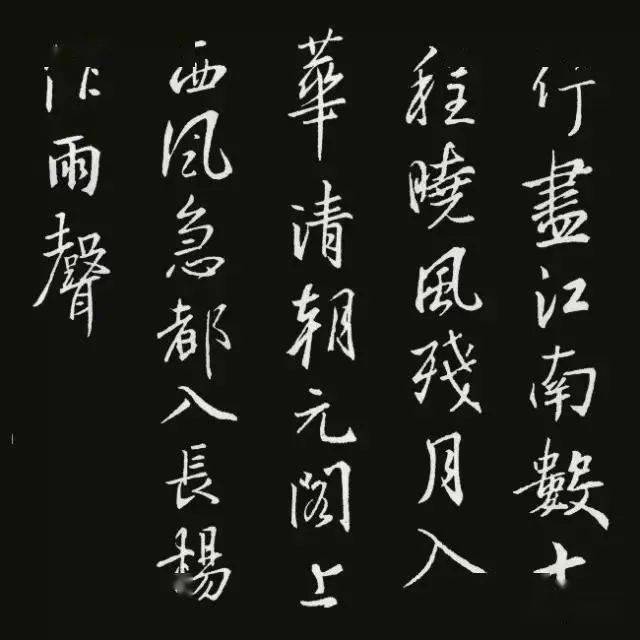 行盡江南數十
程曉風殘月入
華清朝元閣上
西風急都入長楊
作雨聲